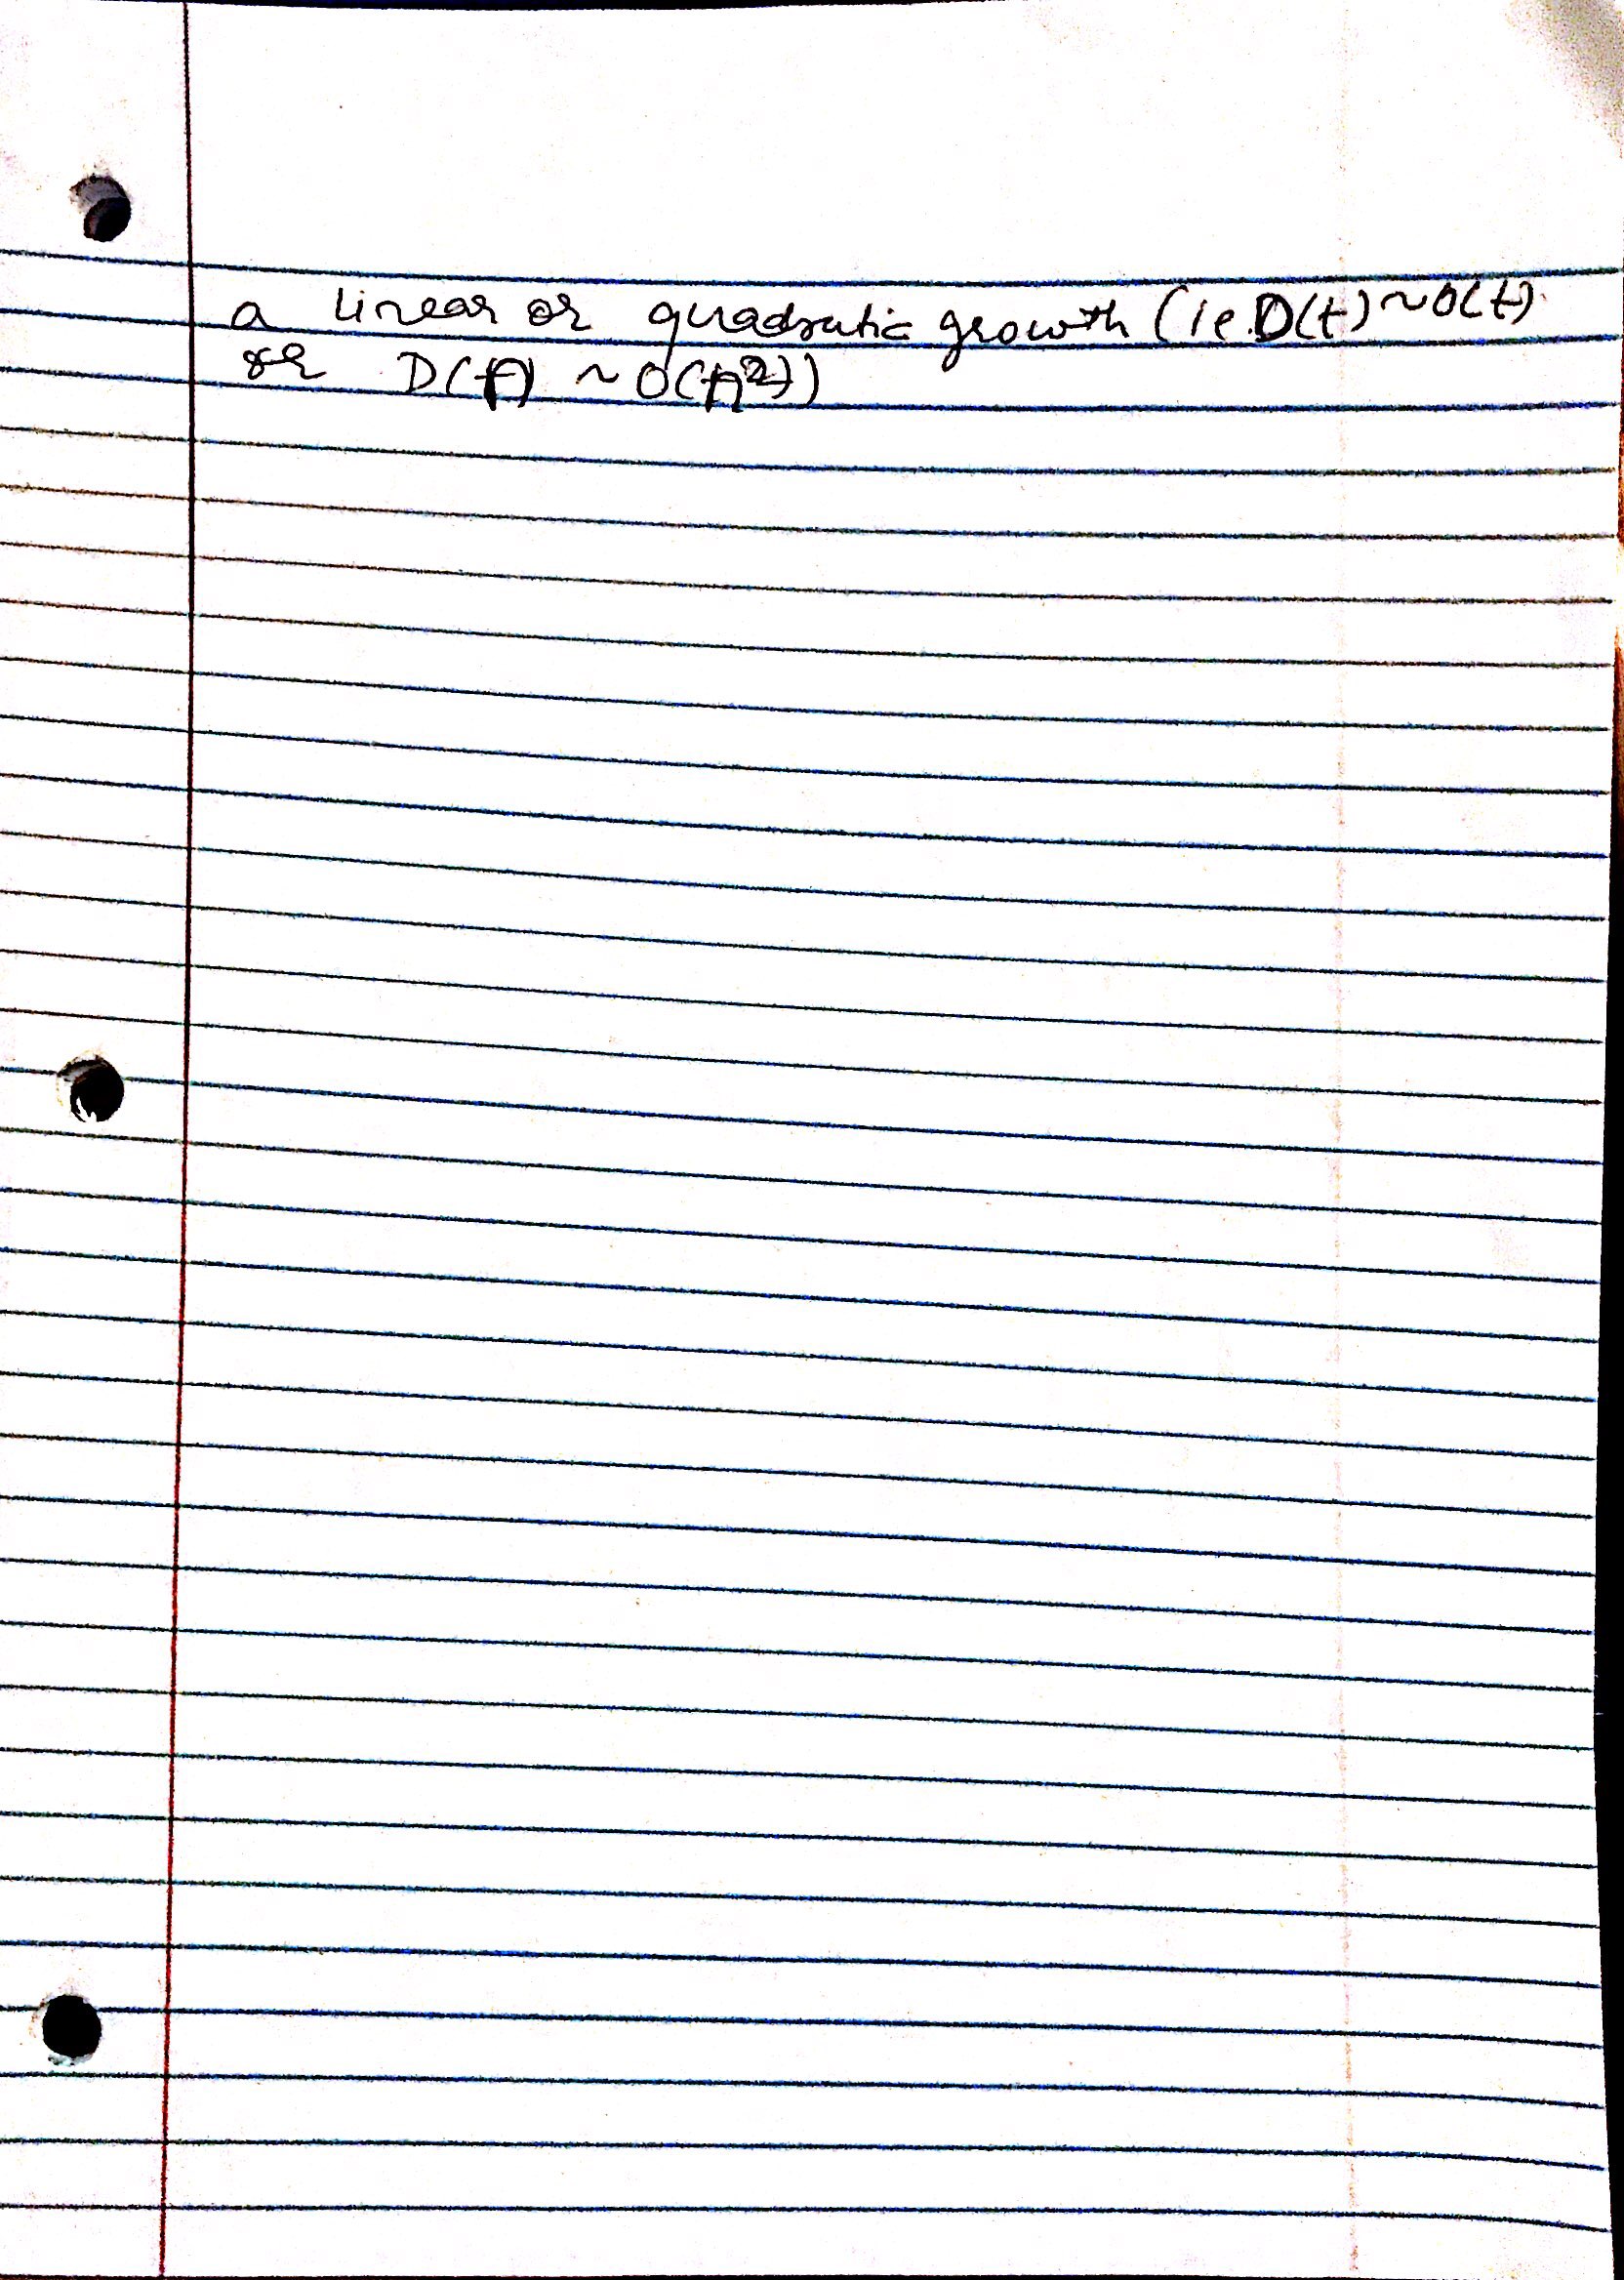 a linear or quadratic growth (ie. D(t) ~ O(t)
or D(t) ~ O(t^2))